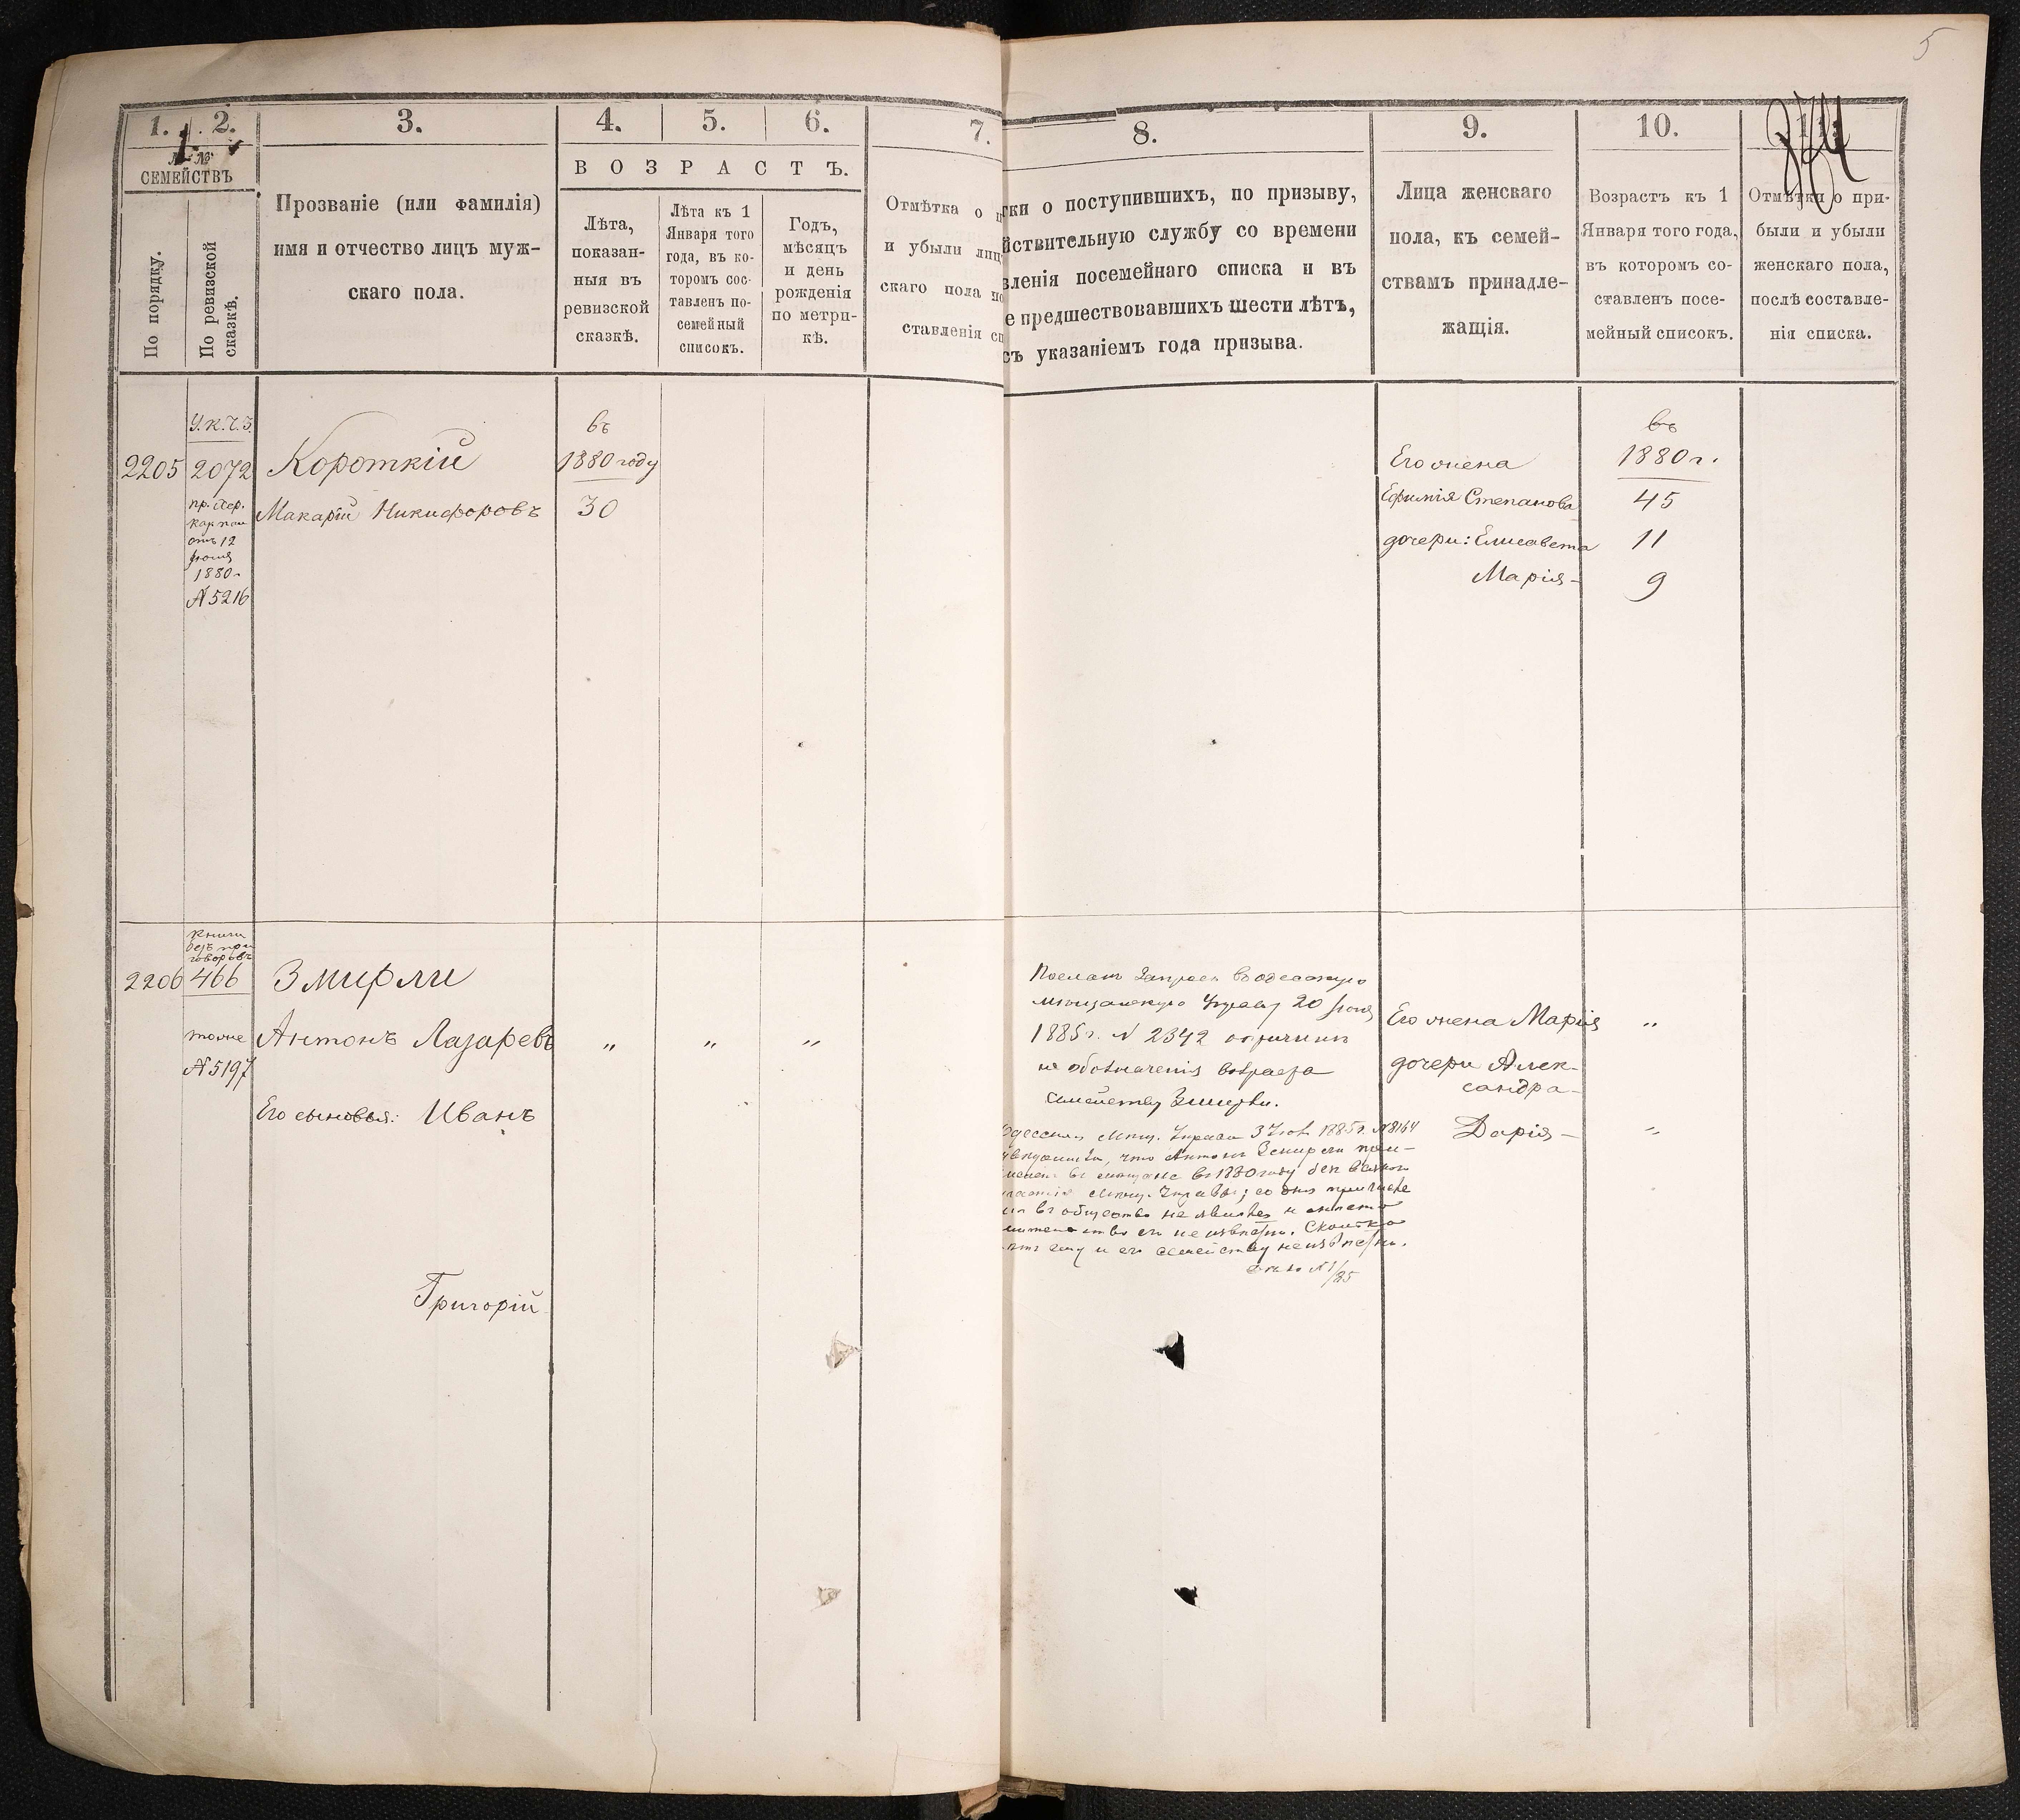 5
1.
2.
3.
4.
5.
6.
7.
8.
9.
10.
№ №
СЕМЕЙСТВЪ
По порядку.
По ревизской
сказкѣ.
Прозваніе (или фамилія)
имя и отчество лицъ муж-
скаго пола.
ВОЗРАСТЪ.
Лѣта,
показан-
ныя въ
ревизской
сказкѣ.
Лѣта къ 1
Января того
года, въ ко-
торомъ сос-
тавленъ по-
семейный
списокъ.
Годъ,
мѣсяцъ
и день
рожденія
по метри-
кѣ.
Отмѣтка о
и убыли лиц
скаго пола по
ставленія сп
тки о поступившихъ, по призыву,
йствительную службу со времени
вленія посемейнаго списка и въ
е предшествовавшихъ шести лѣтъ,
съ указаніемъ года призыва.
Лица женскаго
пола, къ семей-
ствамъ принадле-
жащія.
Возрастъ къ 1
Января того года,
въ которомъ со-
ставленъ посе-
мейный списокъ.
Отмѣтки о при-
были и убыли
женскаго пола,
послѣ составле-
нія списка.
2205
2072
отъ 12
1880 г
№ 5216
Короткій
Макарій Никифоровъ
въ
1880 году
30
Его жена
Ефимія Степанова
дочери: Елисавета
Марія
въ
1880 г.
45
11
9
2206
книги
безъ при
говоровъ
466
тоже
№ 5197
Змирли
Антонъ Лазаревъ
Его сыновья: Иванъ
Григорій
" " "
Посланъ запросъ въ одесскую
мѣщанскую Управу 20 Іюня
1885 г. № 2342 о причинѣ
не обозначенія возраста
семейству Змирли.
Мѣщ. Управа 3 1885 г. № 8164
что Антонъ Змирли
въ мѣщане въ 1880 году безъ
Мѣщ. Управы; со дня
въ общество не явился и
его неизвѣстно. Сколько
лѣтъ ему и его семейству неизвѣстно.
Его жена Марія
дочери Алек-
сандра
Дарія
"
"